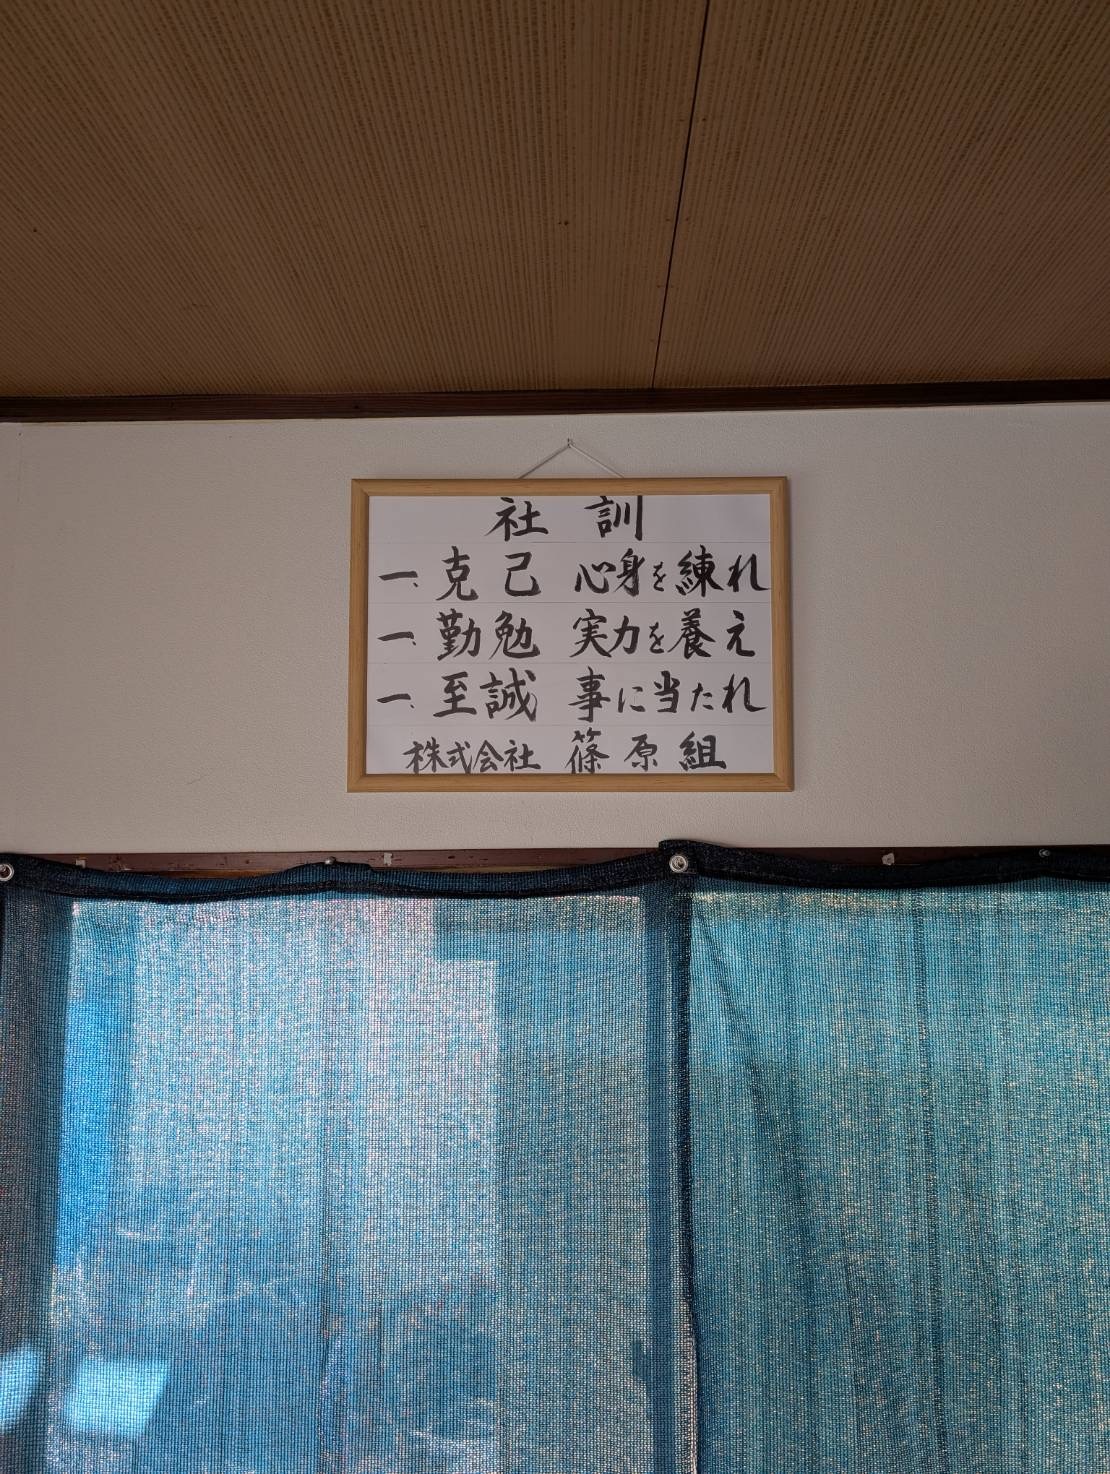 社訓
一、克己 心身を練れ
一、勤勉 実力を養え
一、至誠 事に当たれ
株式会社 篠原組